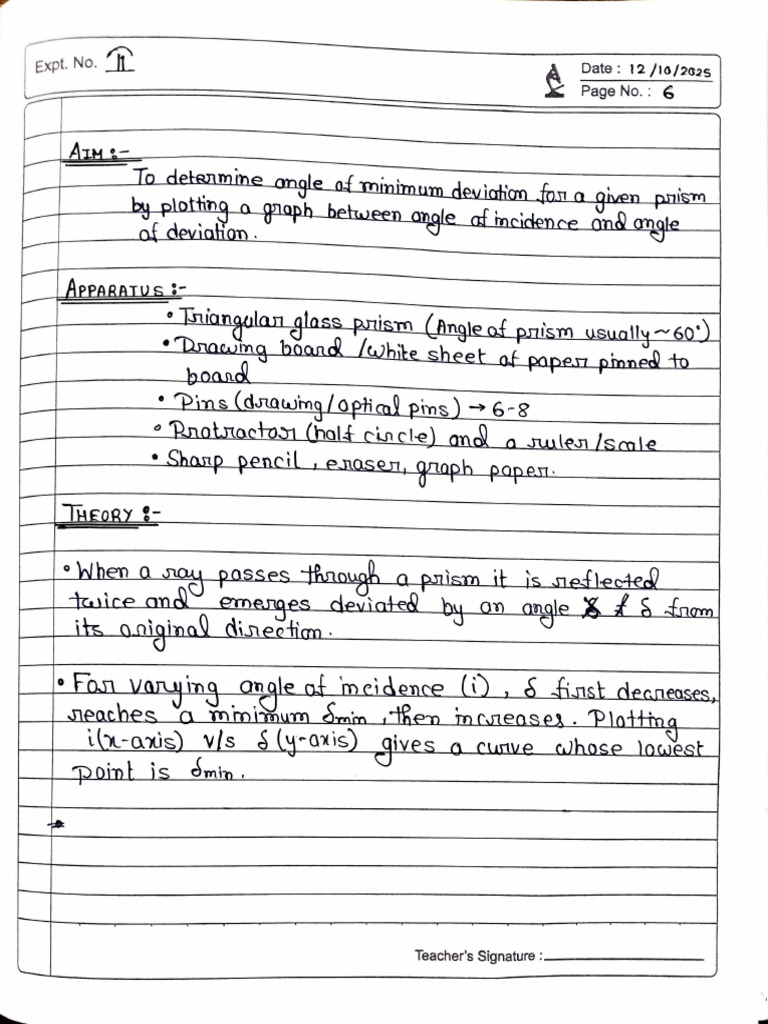 Expt. No. II
Date : 12/10/2025
Page No. : 6
AIM :-
To determine angle of minimum deviation for a given prism
by plotting a graph between angle of incidence and angle
of deviation.
APPARATUS :-
• Triangular glass prism (Angle of prism usually ~ 60°)
• Drawing board / white sheet of paper pinned to
board
• Pins (drawing/optical pins) → 6-8
• Protractor (half circle) and a ruler/scale
• Sharp pencil, eraser, graph paper.
THEORY :-
• When a ray passes through a prism it is reflected
twice and emerges deviated by an angle δ from
its original direction.
• For varying angle of incidence (i), δ first decreases,
reaches a minimum δmin, then increases. Plotting
i(x-axis) v/s δ(y-axis) gives a curve whose lowest
point is δmin.
Teacher's Signature :